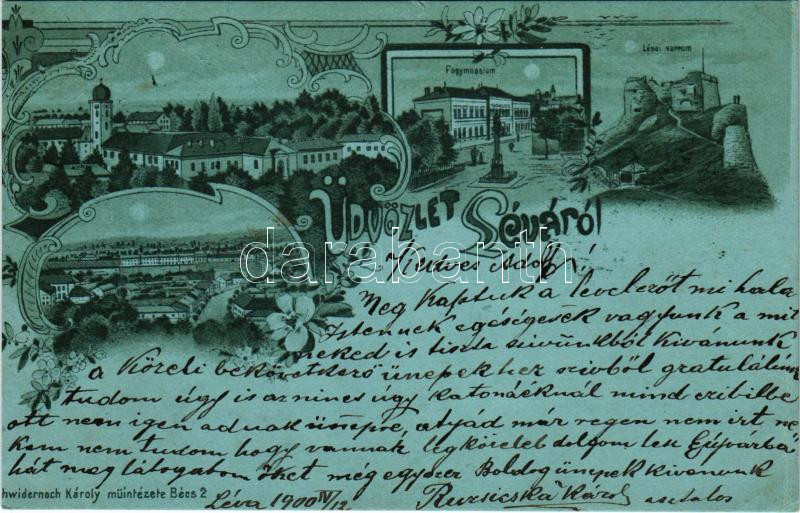 Lévai várrom
Fögymnasium
ÜDVÖZLET Léváról
darabanth
Kedves Adolf!
Meg kaptuk a levelezöt mi hála
Istennek egéségesek vagyunk a mit
neked is tiszta szivünkböl kivánunk
a Közeli bekövetkezö ünepekhez szivböl gratulálunk
tudom úgy is az nincs úgy katonáéknál mind czibilbe
ott nem igen adnak ünepre, atyád már régen nem irt, ne
kem nem tudom hogy vannak legközeleb dolgom lesz
hát meg látogatom öket még egyszer Boldog ünepek kivánunk
hwidernoch Károly müintézete Bécs 2
Léva 1900 IV/12 Ruzsicska Károl asztalos